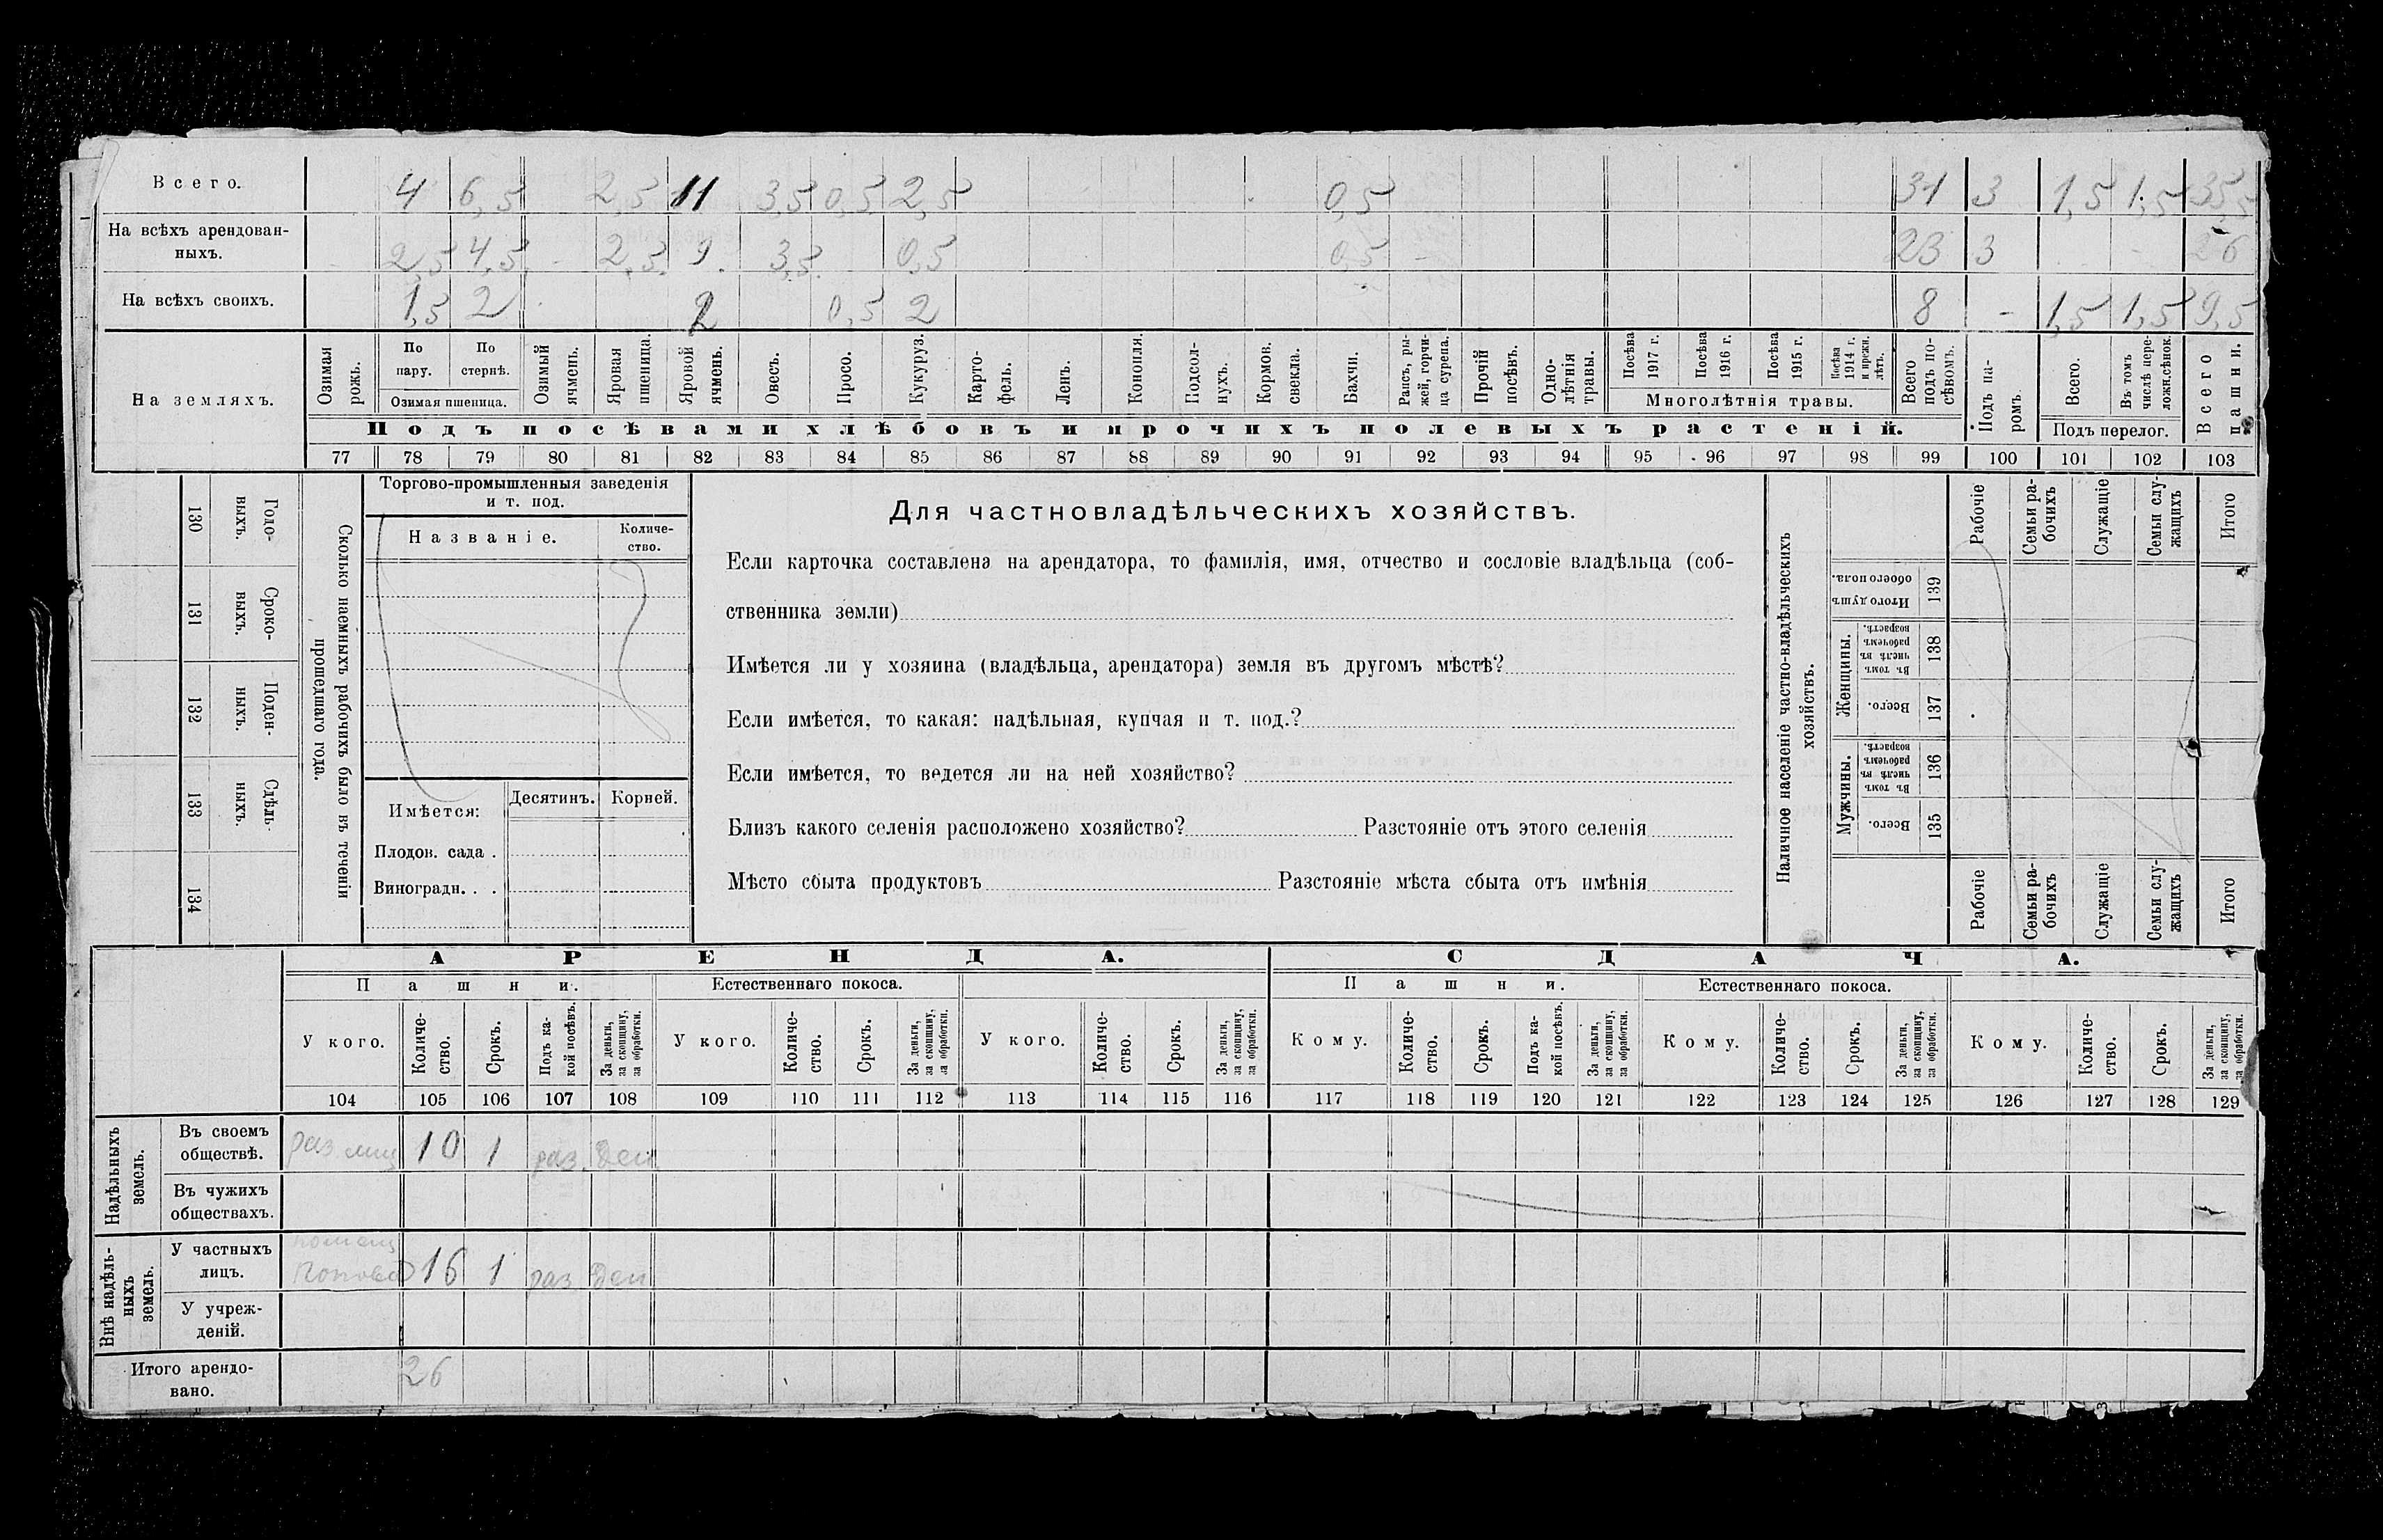 Всего. 4 6,5 2,5 11 3,5 0,5 2,5 0,5 31 3 1,5 1,5 35,5
На всѣхъ арендован-
ныхъ. 2,5 4,5 - 2,5 9 3,5 0,5 0,5 - 23 3 - 26
На всѣхъ своихъ. 1,5 2 2 0,5 2 8 - 1,5 1,5 9,5
На земляхъ.
Озимая рожь.
По пару.
По стернѣ.
Озимая пшеница.
Озимый ячмень.
Яровая пшеница.
Яровой ячмень.
Овесъ.
Просо.
Кукуруз.
Карто-
фель.
Ленъ.
Конопля.
Подсол-
нухъ.
Кормов.
свекла.
Бахчи.
Рапсъ, ры-
жей, горчи-
ца сурепа.
Прочій
посѣвъ.
Одно-
лѣтнія
травы.
Посѣва
1917 г.
Посѣва
1916 г.
Посѣва
1915 г.
Посѣва
1914 г.
и прежн.
лѣтъ.
Многолѣтнія травы.
Всего
подъ по-
сѣвомъ.
Подъ па-
ромъ.
Всего.
Въ томъ
числѣ пере-
ложн.сѣнок.
Подъ перелог.
Всего
пашни.
Подъ посѣвами хлѣбовъ и прочихъ полевыхъ растеній.
77 78 79 80 81 82 83 84 85 86 87 88 89 90 91 92 93 94 95 96 97 98 99 100 101 102 103
Сколько наемныхъ рабочихъ было въ теченіи
прошедшаго года.
Годо-
выхъ.
130
Сроко-
выхъ.
131
Поден-
ныхъ.
132
Сдѣль-
ныхъ.
133
134
Торгово-промышленныя заведенія
и т. под.
Названіе.
Количе-
ство.
Имѣется:
Десятинъ.
Корней.
Плодов. сада .
Виноградн. . .
Для частновладѣльческихъ хозяйствъ.
Если карточка составлена на арендатора, то фамилія, имя, отчество и сословіе владѣльца (соб-
ственника земли)
Имѣется ли у хозяина (владѣльца, арендатора) земля въ другомъ мѣстѣ?
Если имѣется, то какая: надѣльная, купчая и т. под.?
Если имѣется, то ведется ли на ней хозяйство?
Близъ какого селенія расположено хозяйство? Разстояніе отъ этого селенія
Мѣсто сбыта продуктовъ Разстояніе мѣста сбыта отъ имѣнія
Наличное населеніе частно-владѣльческихъ
хозяйствъ.
Итого душъ
обоего пола.
139
Женщины.
Въ томъ
числѣ въ
рабочемъ
возрастѣ.
138
Всего.
137
Мужчины.
Въ томъ
числѣ въ
рабочемъ
возрастѣ.
136
Всего.
135
Рабочіе
Семьи ра-
бочихъ
Служащіе
Семьи слу-
жащихъ
Итого
Рабочіе
Семьи ра-
бочихъ
Служащіе
Семьи слу-
жащихъ
Итого
АРЕНДА. СДАЧА.
Пашни. Естественнаго покоса. Пашни. Естественнаго покоса.
У кого.
Количе-
ство.
Срокъ.
Подъ ка-
кой посѣвъ.
За деньги,
за скопщину,
за обработки.
У кого.
Количе-
ство.
Срокъ.
За деньги,
за скопщину,
за обработки.
У кого.
Количе-
ство.
Срокъ.
За деньги,
за скопщину,
за обработки.
Кому.
Количе-
ство.
Срокъ.
Подъ ка-
кой посѣвъ.
За деньги,
за скопщину,
за обработки.
Кому.
Количе-
ство.
Срокъ.
За деньги,
за скопщину,
за обработки.
Кому.
Количе-
ство.
Срокъ.
За деньги,
за скопщину,
за обработки.
104 105 106 107 108 109 110 111 112 113 114 115 116 117 118 119 120 121 122 123 124 125 126 127 128 129
Надѣльныхъ
земель.
Въ своемъ
обществѣ. раз лиц 10 1 раз. Ден.
Въ чужихъ
обществахъ.
Внѣ надѣль-
ныхъ
земель.
У частныхъ
лицъ. помещ
Попова 16 1 раз Ден
У учреж-
деній.
Итого арендо-
вано. 26